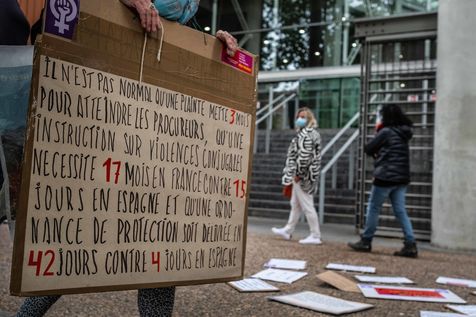 IL N'EST PAS NORMAL QU'UNE PLAINTE METTE 3 MOIS
POUR ATTEINDRE LES PROCUREURS, QU'UNE
INSTRUCTION SUR VIOLENCES CONJUGALES
NECESSITE 17 MOIS EN FRANCE CONTRE 15
JOURS EN ESPAGNE ET QU'UNE ORDO-
NANCE DE PROTECTION SOIT DELIVRÉE EN
42 JOURS CONTRE 4 JOURS EN ESPAGNE